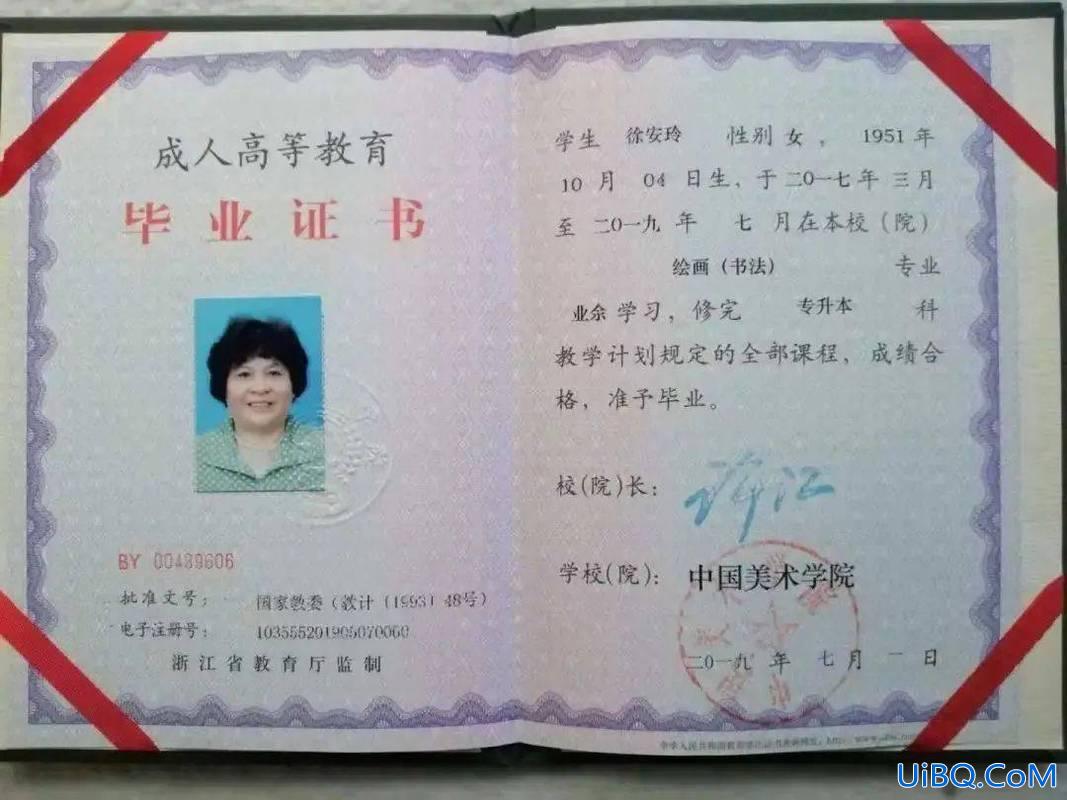 成人高等教育
毕业证书
BY 00439606
批准文号： 国家教委（教计（1993）48号）
电子注册号： 103555201905070060
浙江省教育厅监制
学生 徐安玲 性别 女 ，1951 年
10 月 04 日生，于二〇一七年 三月
至 二〇一九 年 七 月在本校（院）
绘画（书法） 专业
业余 学习，修完 专升本 科
教学计划规定的全部课程，成绩合
格，准予毕业。
校(院)长：
学校(院)： 中国美术学院
二〇一九 年 七月 一 日
UiBQ.CoM